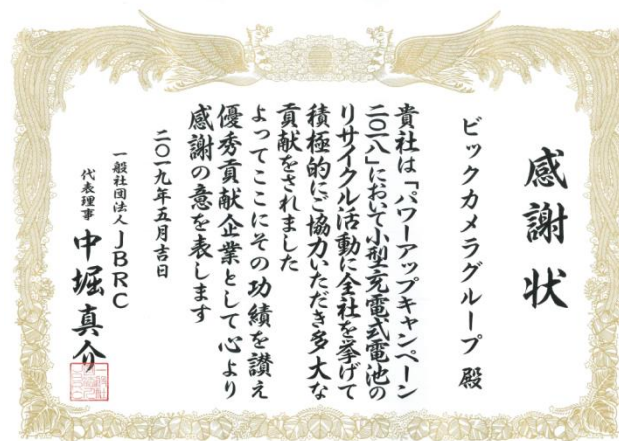 感謝状
ビックカメラグループ 殿
貴社は「パワーアップキャンペーン
二〇一八」において小型充電式電池の
リサイクル活動に全社を挙げて
積極的にご協力いただき多大な
貢献をされました
よってここにその功績を讃え
優秀貢献企業として心より
感謝の意を表します
二〇一九年五月吉日
一般社団法人 JBRC
代表理事 中堀真介